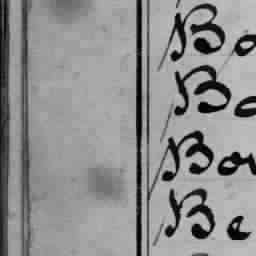 Bo
Bo
Bou
Be